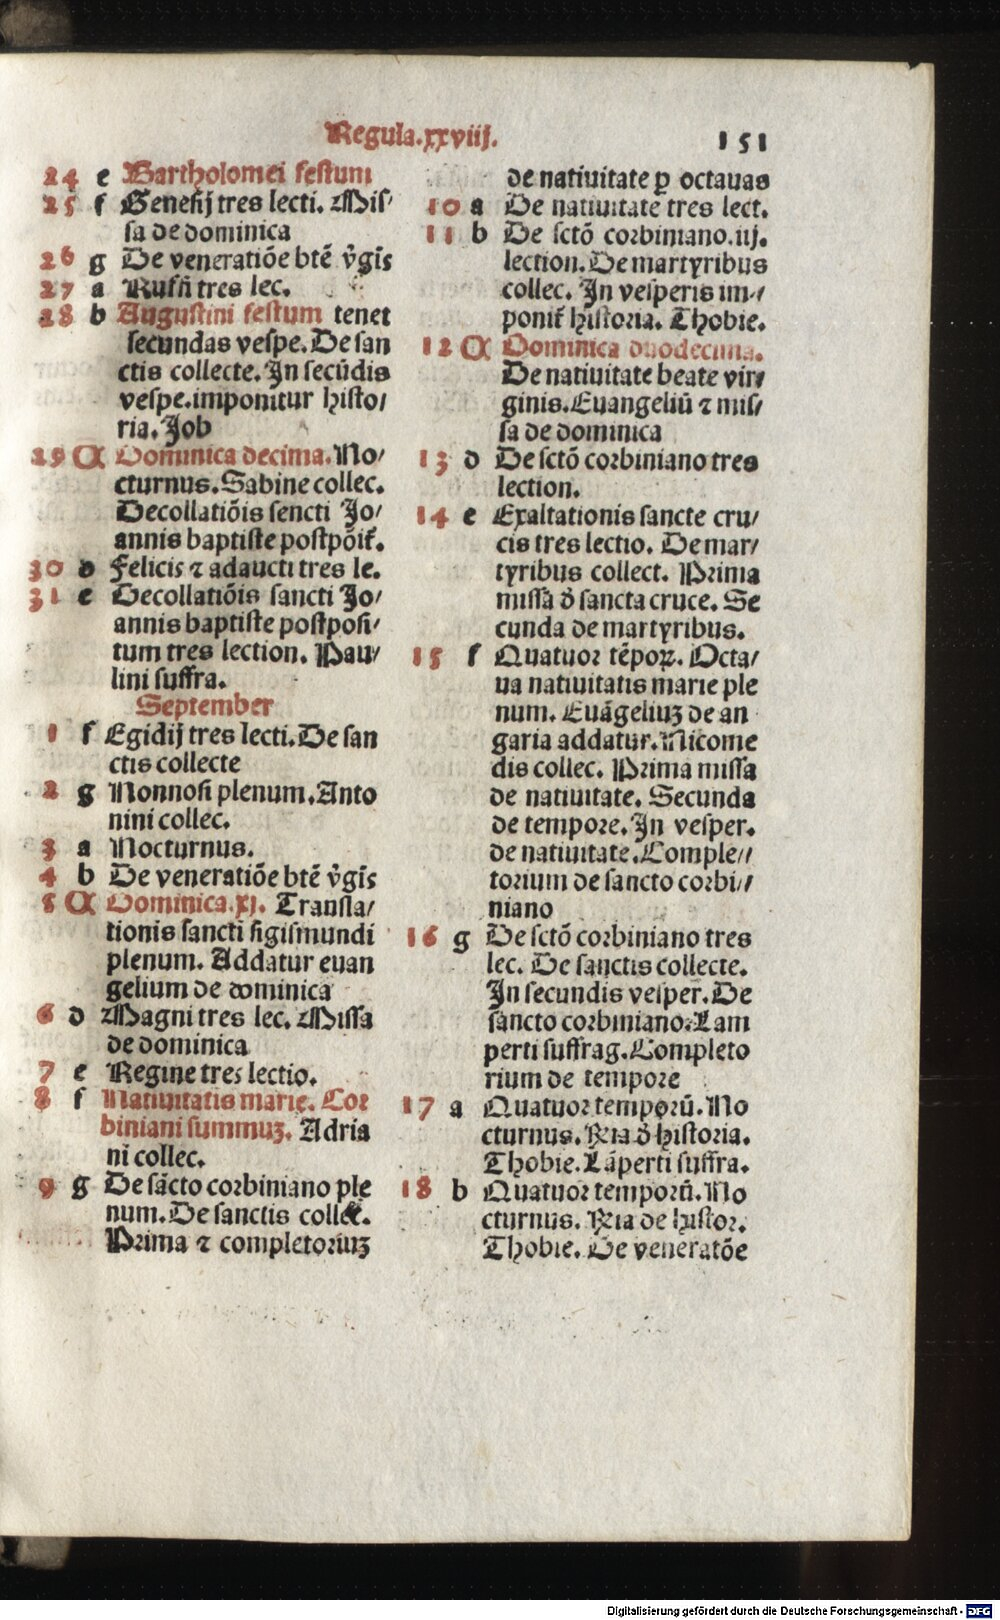 Regula.xxviij.
151
24 e Bartholomei festum
25 f Genesij tres lecti. Mis/
sa de dominica
26 g De veneratiõe btẽ v̄gĩs
27 a Rufñ tres lec.
28 b Augustini festum tenet
secundas vespe. De san
ctis collecte. In secũdis
vespe.imponitur histo/
ria. Job
29 A Dominica decima. No/
cturnus. Sabine collec.
Decollatiõis sencti Jo/
annis baptiste postpõit̃.
30 d Felicis ⁊ adaucti tres le.
31 e Decollatiõis sancti Jo/
annis baptiste postposi/
tum tres lection. Pau/
lini suffra.
September
1 f Egidij tres lecti. De san
ctis collecte
2 g Nonnosi plenum. Anto
nini collec.
3 a Nocturnus.
4 b De veneratiõe btẽ v̄gĩs
5 A Dominica.xj. Transla/
tionis sancti sigismundi
plenum. Addatur euan
gelium de dominica
6 d Magni tres lec. Missa
de dominica
7 e Regine tres lectio.
8 f Natiuitatis marie. Cor
biniani summuʒ. Adria
ni collec.
9 g De sãcto corbiniano ple
num. De sanctis collec.
Prima ⁊ completoriuʒ
de natiuitate ꝑ octauas
10 a De natiuitate tres lect.
11 b De sctõ corbiniano.iij.
lection. De martyribus
collec. In vesperis im/
ponit̃ historia. Thobie.
12 A Dominica duodecima.
De natiuitate beate vir/
ginis. Euangeliũ ⁊ mis/
sa de dominica
13 d De sctõ corbiniano tres
lection.
14 e Exaltationis sancte cru/
cis tres lectio. De mar/
tyribus collect. Prima
missa đ sancta cruce. Se
cunda de martyribus.
15 f Quatuor tẽpoꝝ. Octa/
ua natiuitatis marie ple
num. Euãgeliuʒ de an
garia addatur. Nicome
dis collec. Prima missa
de natiuitate. Secunda
de tempore. In vesper.
de natiuitate. Comple//
torium de sancto corbi//
niano
16 g De sctõ corbiniano tres
lec. De sanctis collecte.
In secundis vesper. De
sancto corbiniano. Lam
perti suffrag. Completo
rium de tempore
17 a Quatuor temporũ. No
cturnus. ℞ia đ historia.
Thobie. Lãperti suffra.
18 b Quatuor temporũ. No
cturnus. ℞ia de histor.
Thobie. De veneratõe
Digitalisierung gefördert durch die Deutsche Forschungsgemeinschaft - DFG